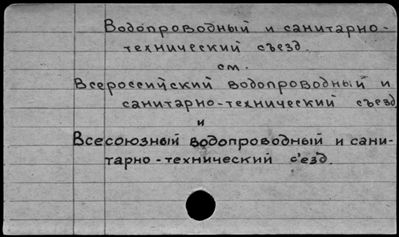 Водопроводный и санитарно-
технический съезд.
см.
Всероссийский водопроводный и
санитарно-технический съезд
и
Всесоюзный водопроводный и сани-
тарно-технический с'езд.